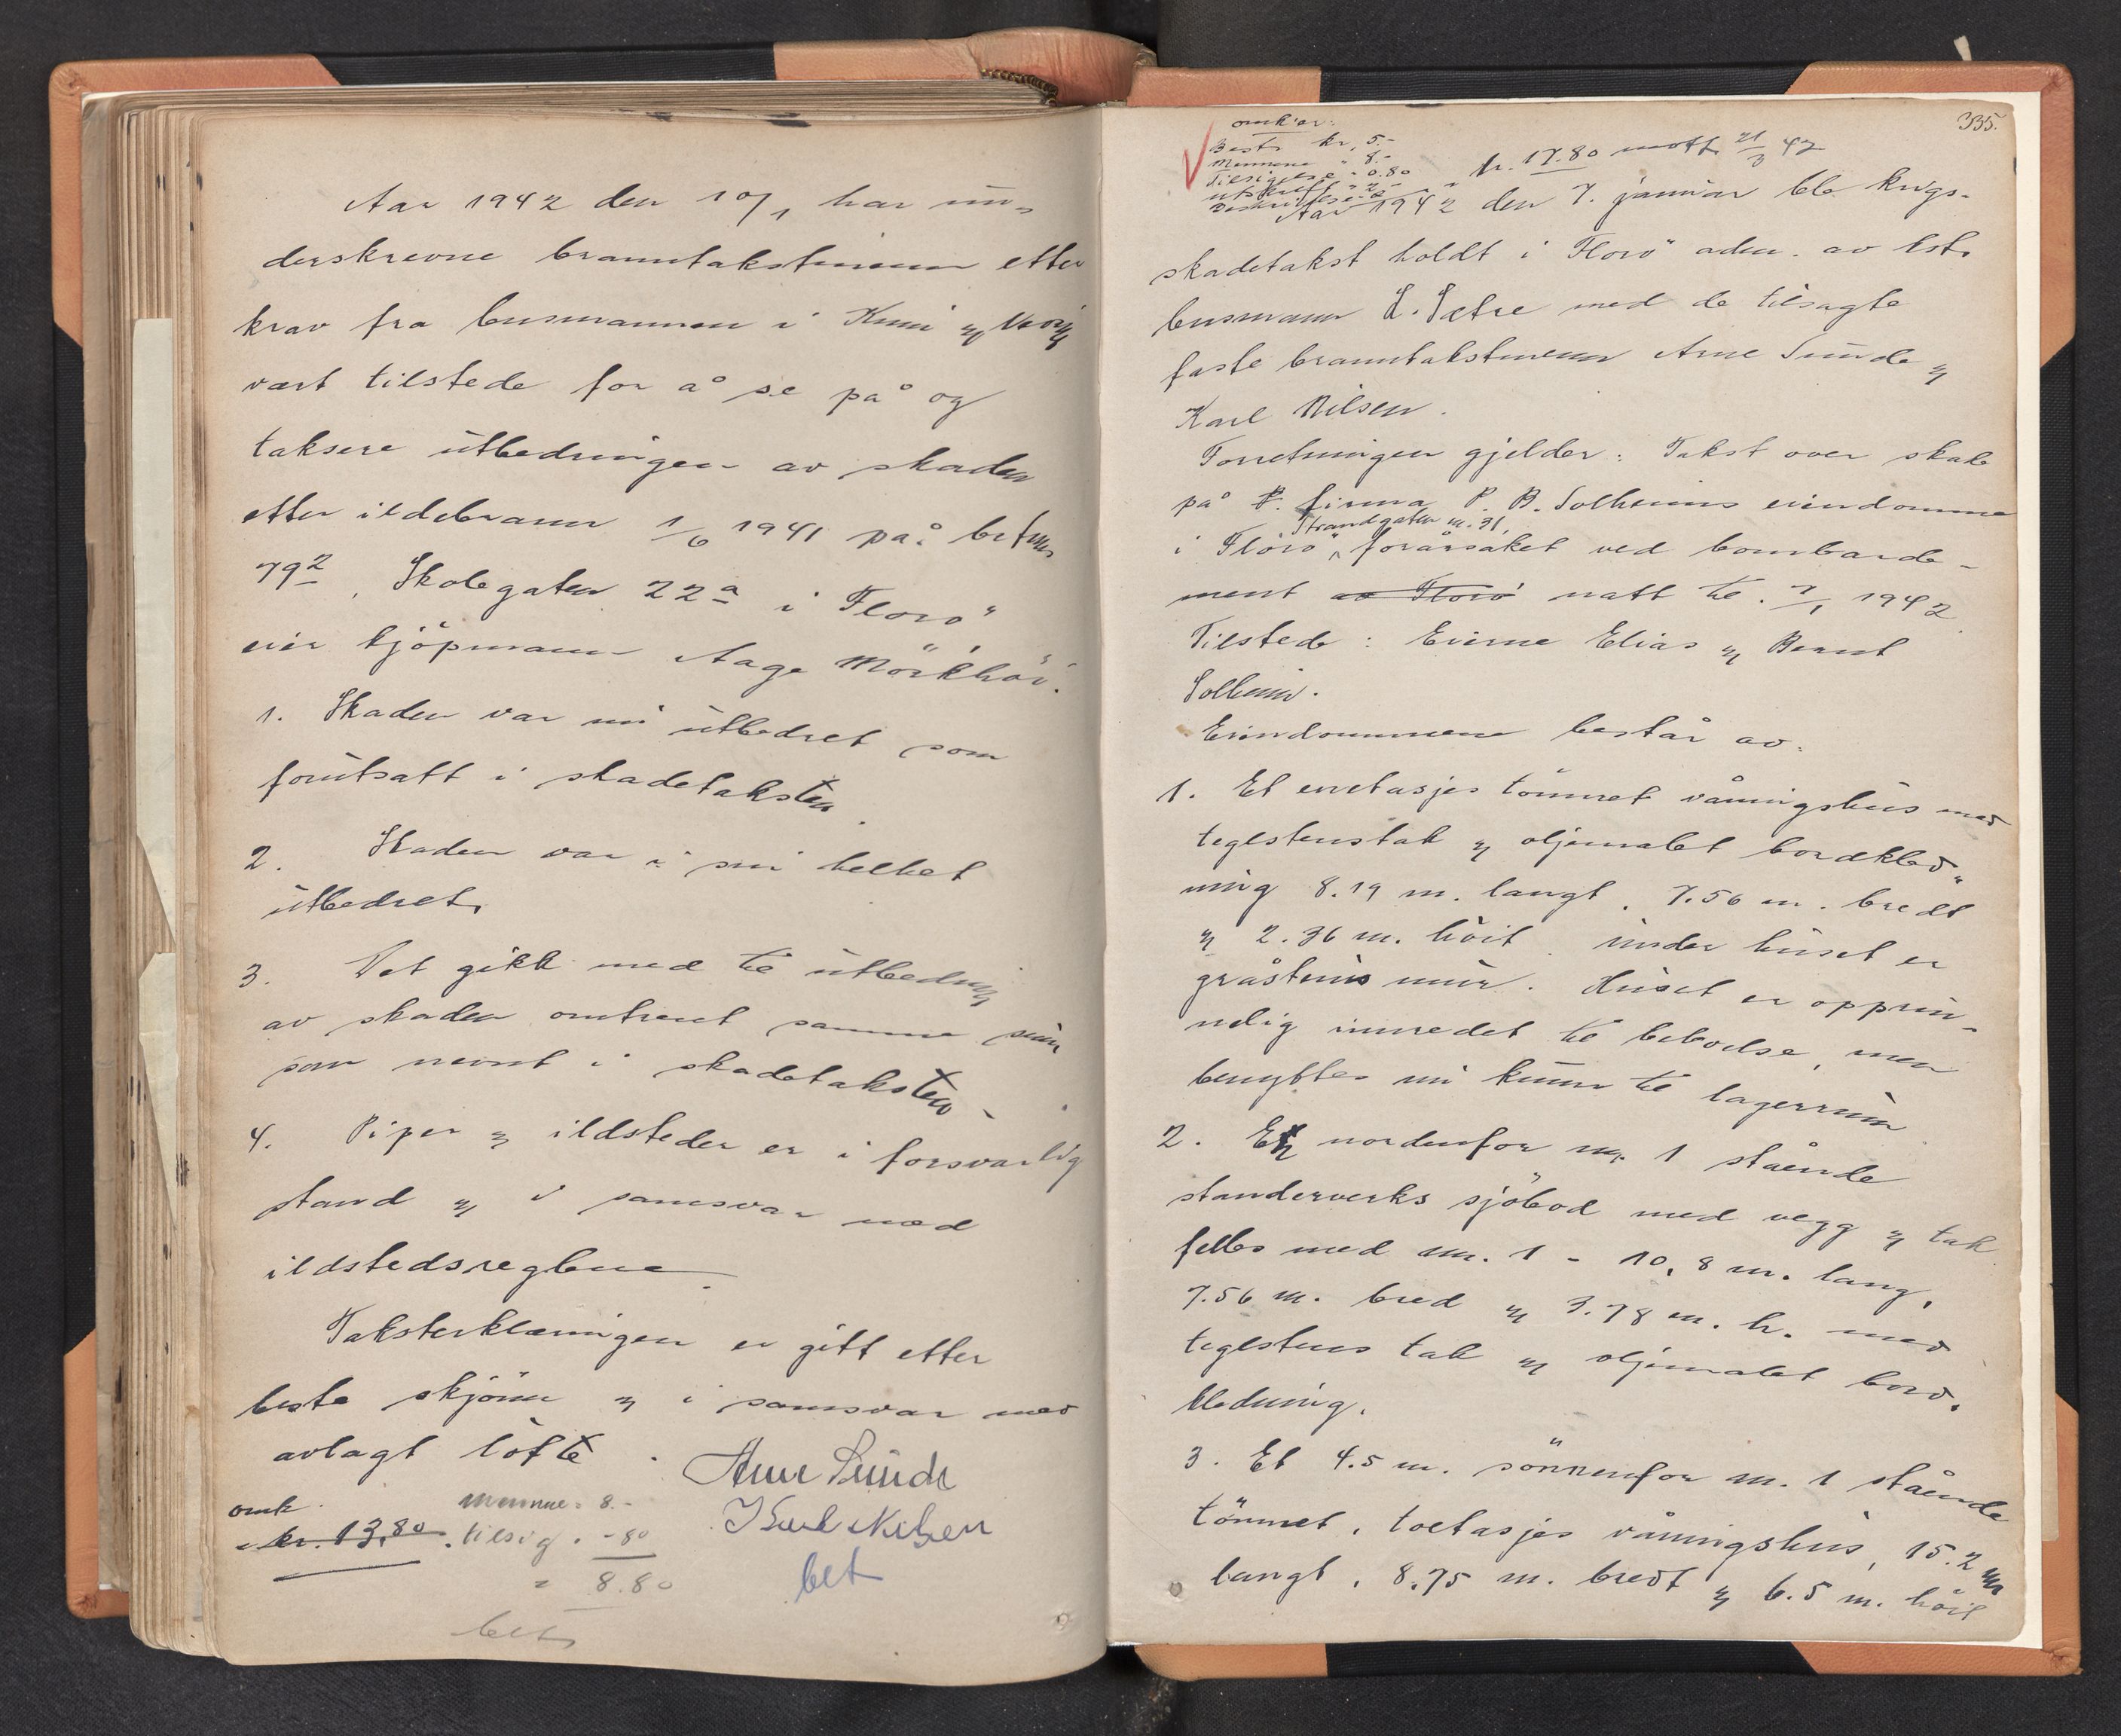 Aar 1942 den 10/1 har un-
derskrevne branntakstmenn etter
krav fra lensmannen i Kinn og
vært tilstede for å se på og
taksere utbedringen av skaden
etter ildebrann 1/6 1941 på br. fnr.
79 2, Skolegaten 22 a i Florö
eier kjöpmann Aage Mörkhöi.
1. Skaden var nu utbedret som
forutsatt i skadetaksten.
2. Skaden var i sin helhet
utbedret.
3. Det gikk med til utbedring
av skaden omtrent samme sum
som nevnt i skadetaksten
4. Piper og ildsteder er i forsvarlig
stand og i samsvar med
ildstedsreglene.
Taksterklæringen er gitt etter
beste skjönn og i samsvar med
avlagt löfte.
Arne Sunde
Karl Nilsen
bet
omk
kr. 13.80
Mennene 8.-
tilsig. -80
= 8.80
bet
335.
omk.er:
Best. kr. 5.-
Mennene " 8.-
Tilsigelse " 0.80
Utskrift " 2.-
kr. 17.80 mott. 21/3 42
Aar 1942 den 7. januar ble krigs-
skadetakst holdt i Florö adm. av kst.
lensmann L. Sætre med de tilsagte
faste branntakstmenn Arne Sunde og
Karl Nilsen.
Forretningen gjelder: Takst over skade
på P. firma P. B. Solheims eiendomme
Strandgaten nr. 31,
i Florö, forårsaket ved bombarde-
ment av Florö natt til 7/1 1942.
Tilstede: Eierne Elias og Bernt
Solheim.
Eiendommene består av:
1. Et enetasjes tömret våningshus med
teglstenstak og oljemalet bordkled-
ning 8.19 m. langt, 7.56 m. bredt
og 2.36 m. höit. Under huset er
gråstens mur. Huset er opprin-
nelig innredet til beboelse, men
benyttes nu kunn til lagerrum
2. En nordenfor nr. 1 stående
standerverks sjöbod med vegg og tak
felles med nr. 1 - 10,8 m. lang,
7.56 m. bred og 3.78 m. h. med
teglstens tak og oljemalet bord-
kledning.
3. Et 4.5 m. sönnenfor nr. 1 stående
tömret, toetasjes våningshus, 15.2 m
langt, 8.75 m. bredt og 6.5 m. höit